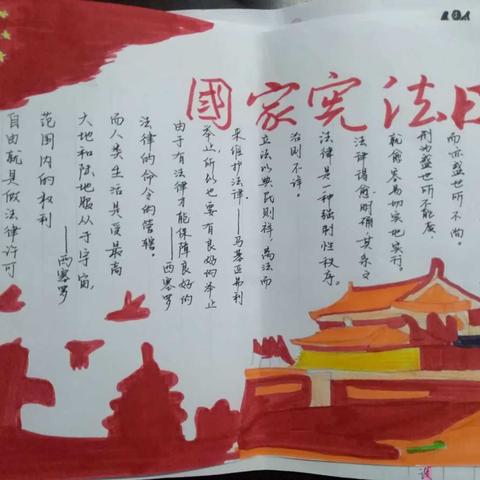 國家宪法日
而亦盛世所不尚。
刑为盛世所不能废,
就愈容易切实地实行。
法律得愈明确,其条文
法律是一种强制性秩序。
治则不祥。
立法以典民则祥,离法而
来维护法律。——马基亚弗利
举止,所以也要有良好的举止
由于有法律才能保障良好的
——西塞罗
法律的命令的管辖。
而人类生活是受最高
大地和陆地服从于宇宙,
——西塞罗
范围内的权利
自由就是做法律许可